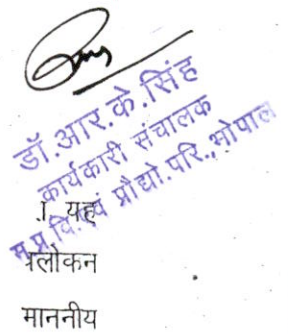 डॉ.आर.के.सिंह
कार्यकारी संचालक
म.प्र.वि.एवं प्रौद्यो.परि.,भोपाल
यह
माननीय